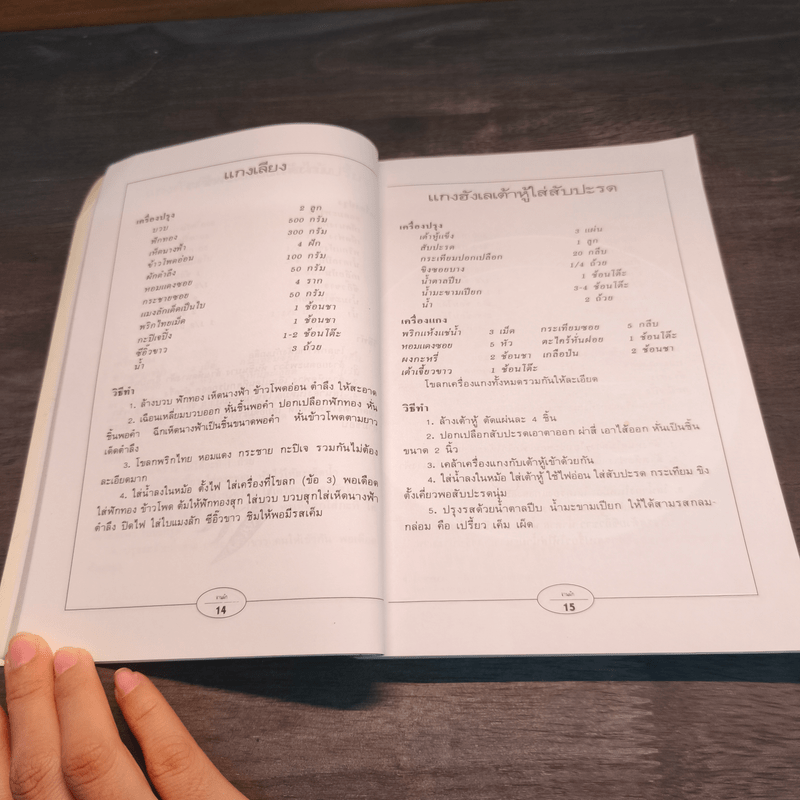 แกงเลียง
เครื่องปรุง
บวบ 2 ลูก
ฟักทอง 500 กรัม
เห็ดนางฟ้า 300 กรัม
ข้าวโพดอ่อน 4 ฝัก
ผักตำลึง 100 กรัม
หอมแดงซอย 50 กรัม
กระชายซอย 4 ราก
แมงลักเด็ดเป็นใบ 50 กรัม
พริกไทยเม็ด 1 ช้อนชา
กะปิเจปิ้ง 1 ช้อนชา
ซีอิ๊วขาว 1-2 ช้อนโต๊ะ
น้ำ 3 ถ้วย
วิธีทำ
1. ล้างบวบ ฟักทอง เห็ดนางฟ้า ข้าวโพดอ่อน ตำลึง ให้สะอาด
2. เฉือนเหลี่ยมบวบออก หั่นชิ้นพอคำ ปอกเปลือกฟักทอง หั่น
ชิ้นพอคำ ฉีกเห็ดนางฟ้าเป็นชิ้นขนาดพอคำ หั่นข้าวโพดตามยาว
เด็ดตำลึง
3. โขลกพริกไทย หอมแดง กระชาย กะปิเจ รวมกันไม่ต้อง
ละเอียดมาก
4. ใส่น้ำลงในหม้อ ตั้งไฟ ใส่เครื่องที่โขลก (ข้อ 3) พอเดือด
ใส่ฟักทอง ข้าวโพด ต้มให้ฟักทองสุก ใส่บวบ บวบสุกใส่เห็ดนางฟ้า
ตำลึง ปิดไฟ ใส่ใบแมงลัก ซีอิ๊วขาว ชิมให้พอมีรสเค็ม
14
แกงฮังเลเต้าหู้ใส่สับปะรด
เครื่องปรุง
เต้าหู้แข็ง 3 แผ่น
สับปะรด 1 ลูก
กระเทียมปอกเปลือก 20 กลีบ
ขิงซอยบาง 1/4 ถ้วย
น้ำตาลปีบ 1 ช้อนโต๊ะ
น้ำมะขามเปียก 3-4 ช้อนโต๊ะ
น้ำ 2 ถ้วย
เครื่องแกง
พริกแห้งแช่น้ำ 3 เม็ด กระเทียมซอย 5 กลีบ
หอมแดงซอย 5 หัว ตะไคร้หั่นฝอย 1 ช้อนโต๊ะ
ผงกะหรี่ 2 ช้อนชา เกลือป่น 2 ช้อนชา
เต้าเจี้ยวขาว 1 ช้อนโต๊ะ
โขลกเครื่องแกงทั้งหมดรวมกันให้ละเอียด
วิธีทำ
1. ล้างเต้าหู้ ตัดแผ่นละ 4 ชิ้น
2. ปอกเปลือกสับปะรดเอาตาออก ผ่าสี่ เอาไส้ออก หั่นเป็นชิ้น
ขนาด 2 นิ้ว
3. เคล้าเครื่องแกงกับเต้าหู้เข้าด้วยกัน
4. ใส่น้ำลงในหม้อ ใส่เต้าหู้ ใช้ไฟอ่อน ใส่สับปะรด กระเทียม ขิง
ตั้งเคี่ยวพอสับปะรดนุ่ม
5. ปรุงรสด้วยน้ำตาลปีบ น้ำมะขามเปียก ให้ได้สามรสกลม-
กล่อม คือ เปรี้ยว เค็ม เผ็ด
15